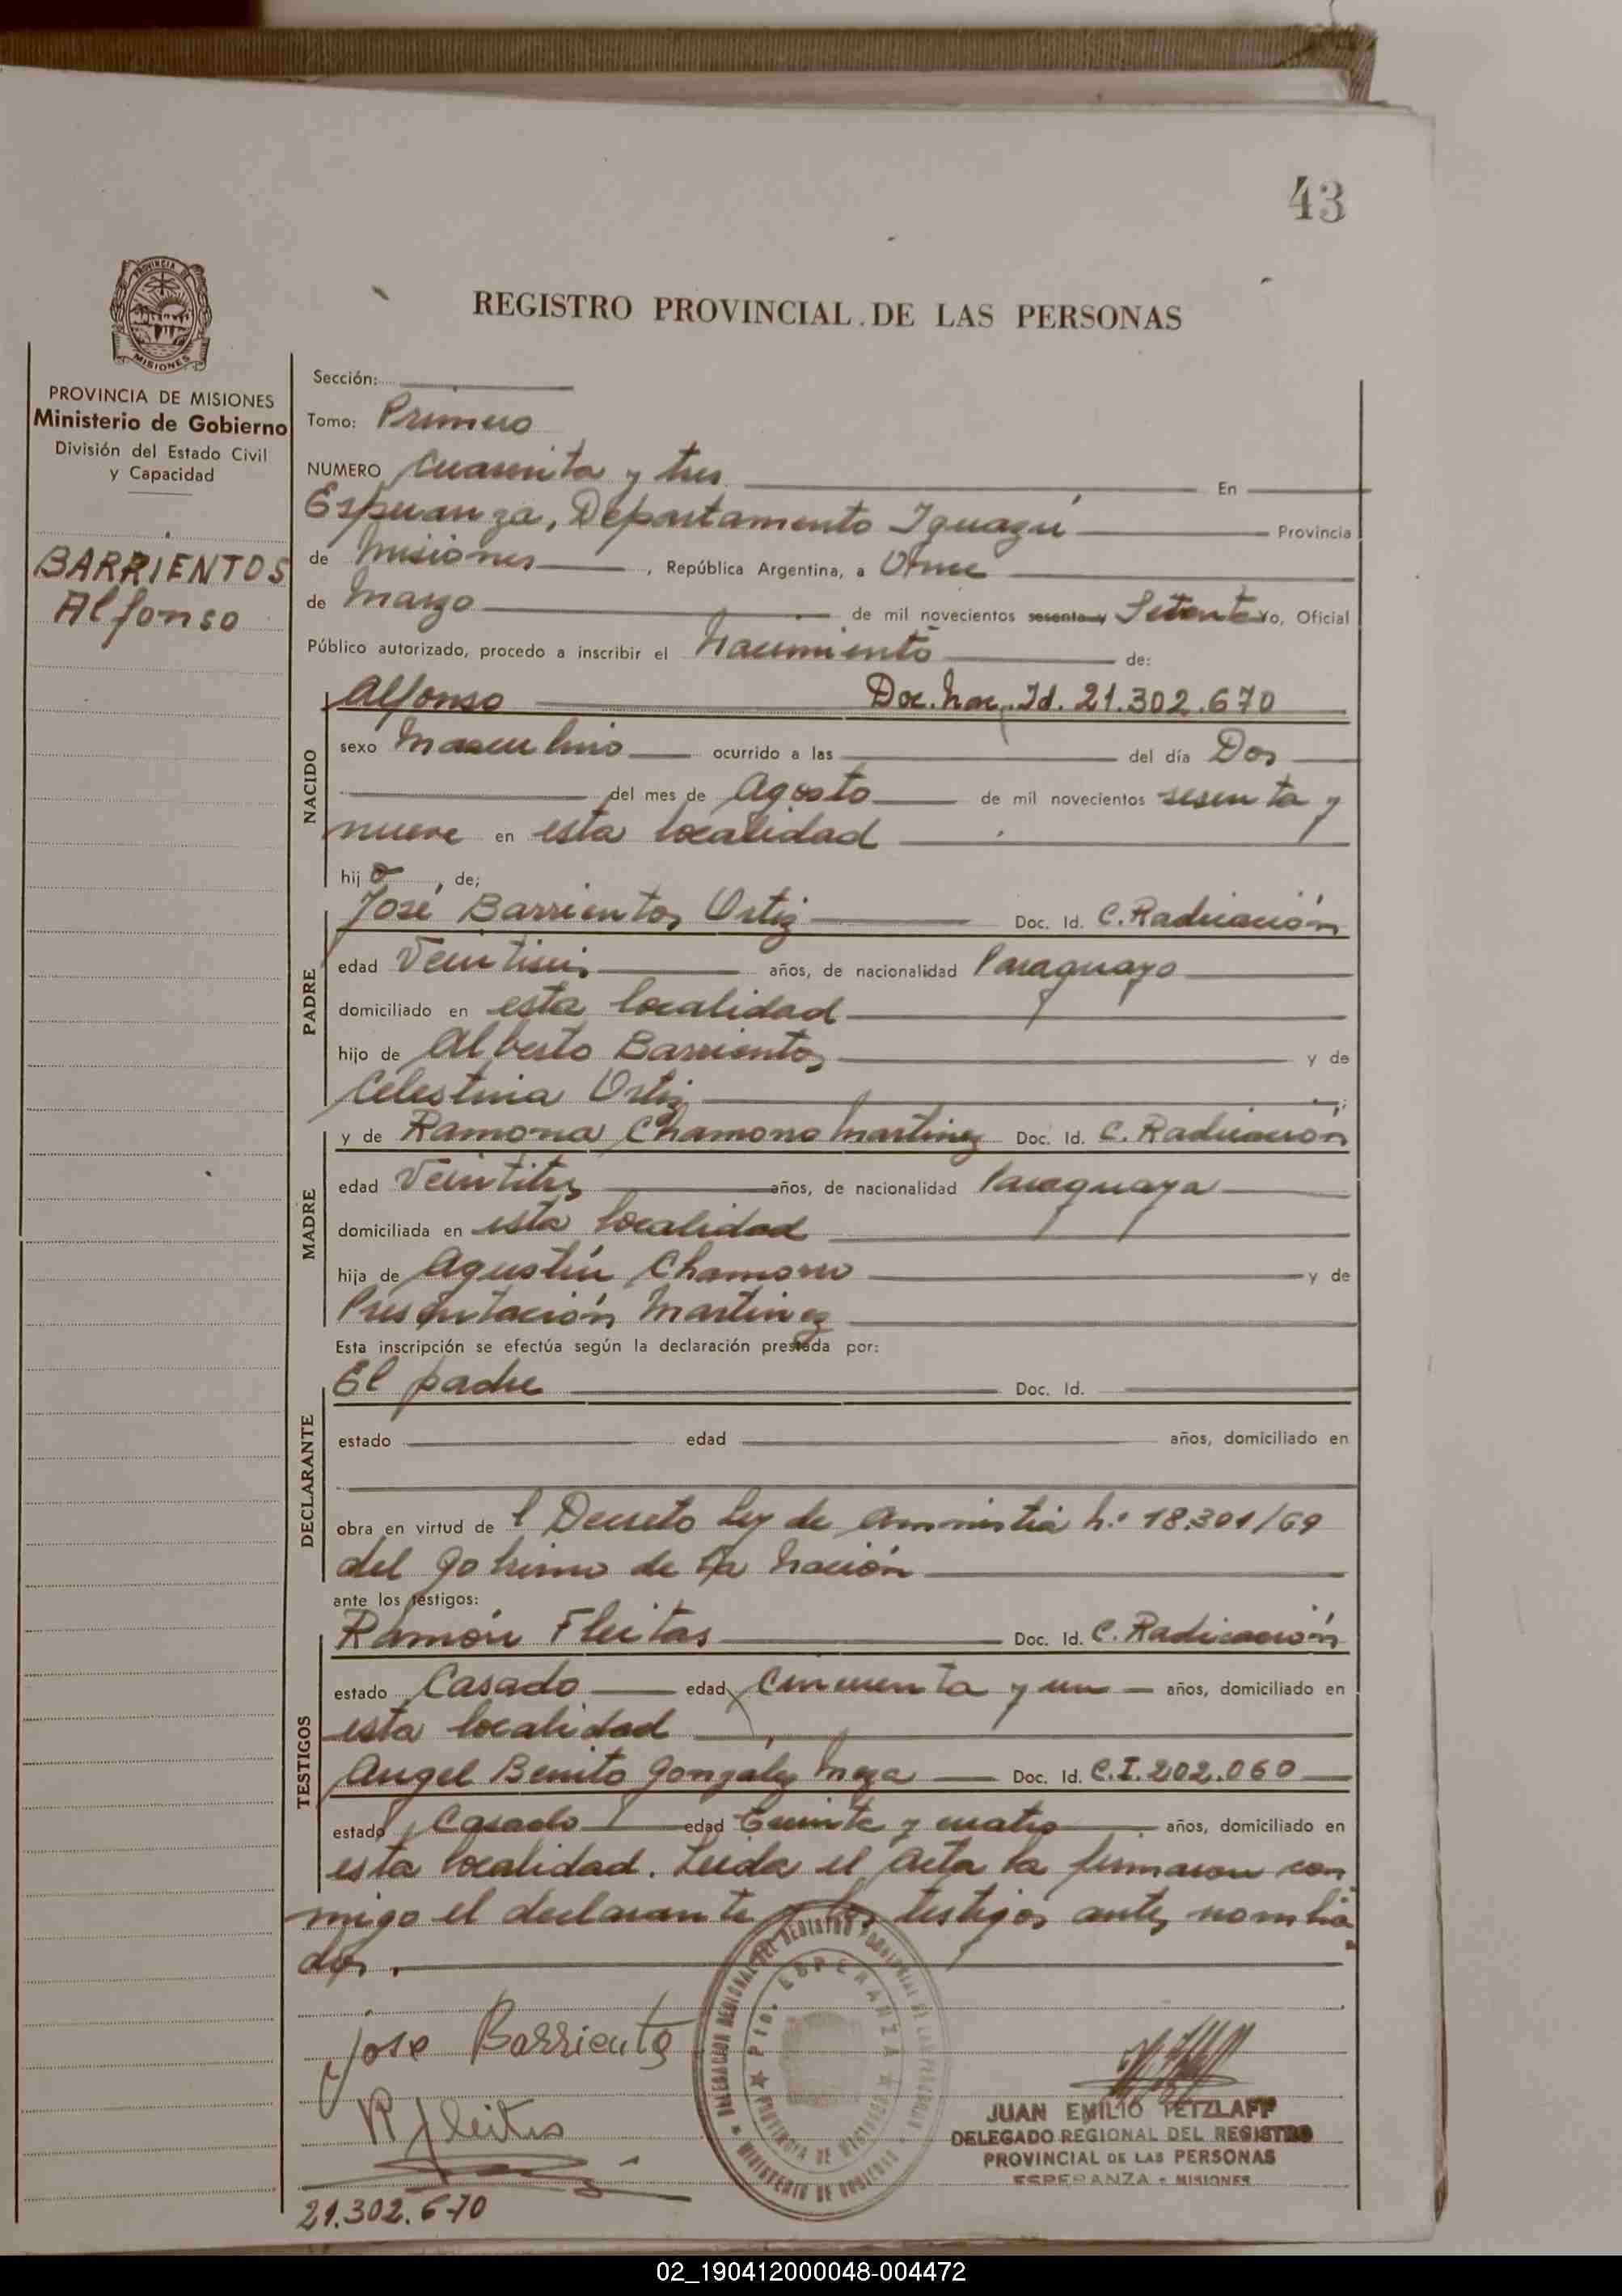 43
PROVINCIA DE
MISIONES
REGISTRO PROVINCIAL DE LAS PERSONAS
PROVINCIA DE MISIONES
Ministerio de Gobierno
División del Estado Civil
y Capacidad
BARRIENTOS
Alfonso
Sección:
Tomo: Primero
NUMERO Cuarenta y tres En
Esperanza, Departamento Iguazú Provincia
de Misiones, República Argentina, a Once
de Marzo de mil novecientos sesenta y Setenta Yo, Oficial
Público autorizado, procedo a inscribir el Nacimiento de:
Alfonso Doc. Nac. Id. 21.302.670
NACIDO
sexo Masculino ocurrido a las del día Dos
del mes de Agosto de mil novecientos sesenta y
nueve en esta localidad
hijo, de;
PADRE
José Barrientos Ortiz Doc. Id. C. Radicación
edad Veintiseis años, de nacionalidad Paraguayo
domiciliado en esta localidad
hijo de Alberto Barrientos y de
Celestina Ortiz
MADRE
y de Ramona Chamorro Martinez Doc. Id. C. Radicación
edad Veintitres años, de nacionalidad Paraguaya
domiciliada en esta localidad
hija de Agustín Chamorro y de
Presentación Martinez
Esta inscripción se efectúa según la declaración prestada por:
DECLARANTE
El padre Doc. Id.
estado edad años, domiciliado en
obra en virtud del Decreto Ley de Amnistia N.º 18.301/69
del gobierno de la Nación
ante los testigos:
TESTIGOS
Ramón Fleitas Doc. Id. C. Radicación
estado Casado edad Cincuenta y un años, domiciliado en
esta localidad
Angel Benito Gonzalez Meza Doc. Id. C.I. 202.060
estado Casado edad Treinta y cuatro años, domiciliado en
esta localidad. Leida el Acta la firmaron con
migo el declarante y los testigos antes nombra
dos.
Jose Barrientos
R Fleitas
DELEGACION REGIONAL DEL REGISTRO PROVINCIAL DE LAS PERSONAS
MINISTERIO DE GOBIERNO
PTO. ESPERANZA
PROVINCIA DE MISIONES
JUAN EMILIO TETZLAFF
DELEGADO REGIONAL DEL REGISTRO
PROVINCIAL DE LAS PERSONAS
ESPERANZA - MISIONES
21.302.670
02_190412000048-004472